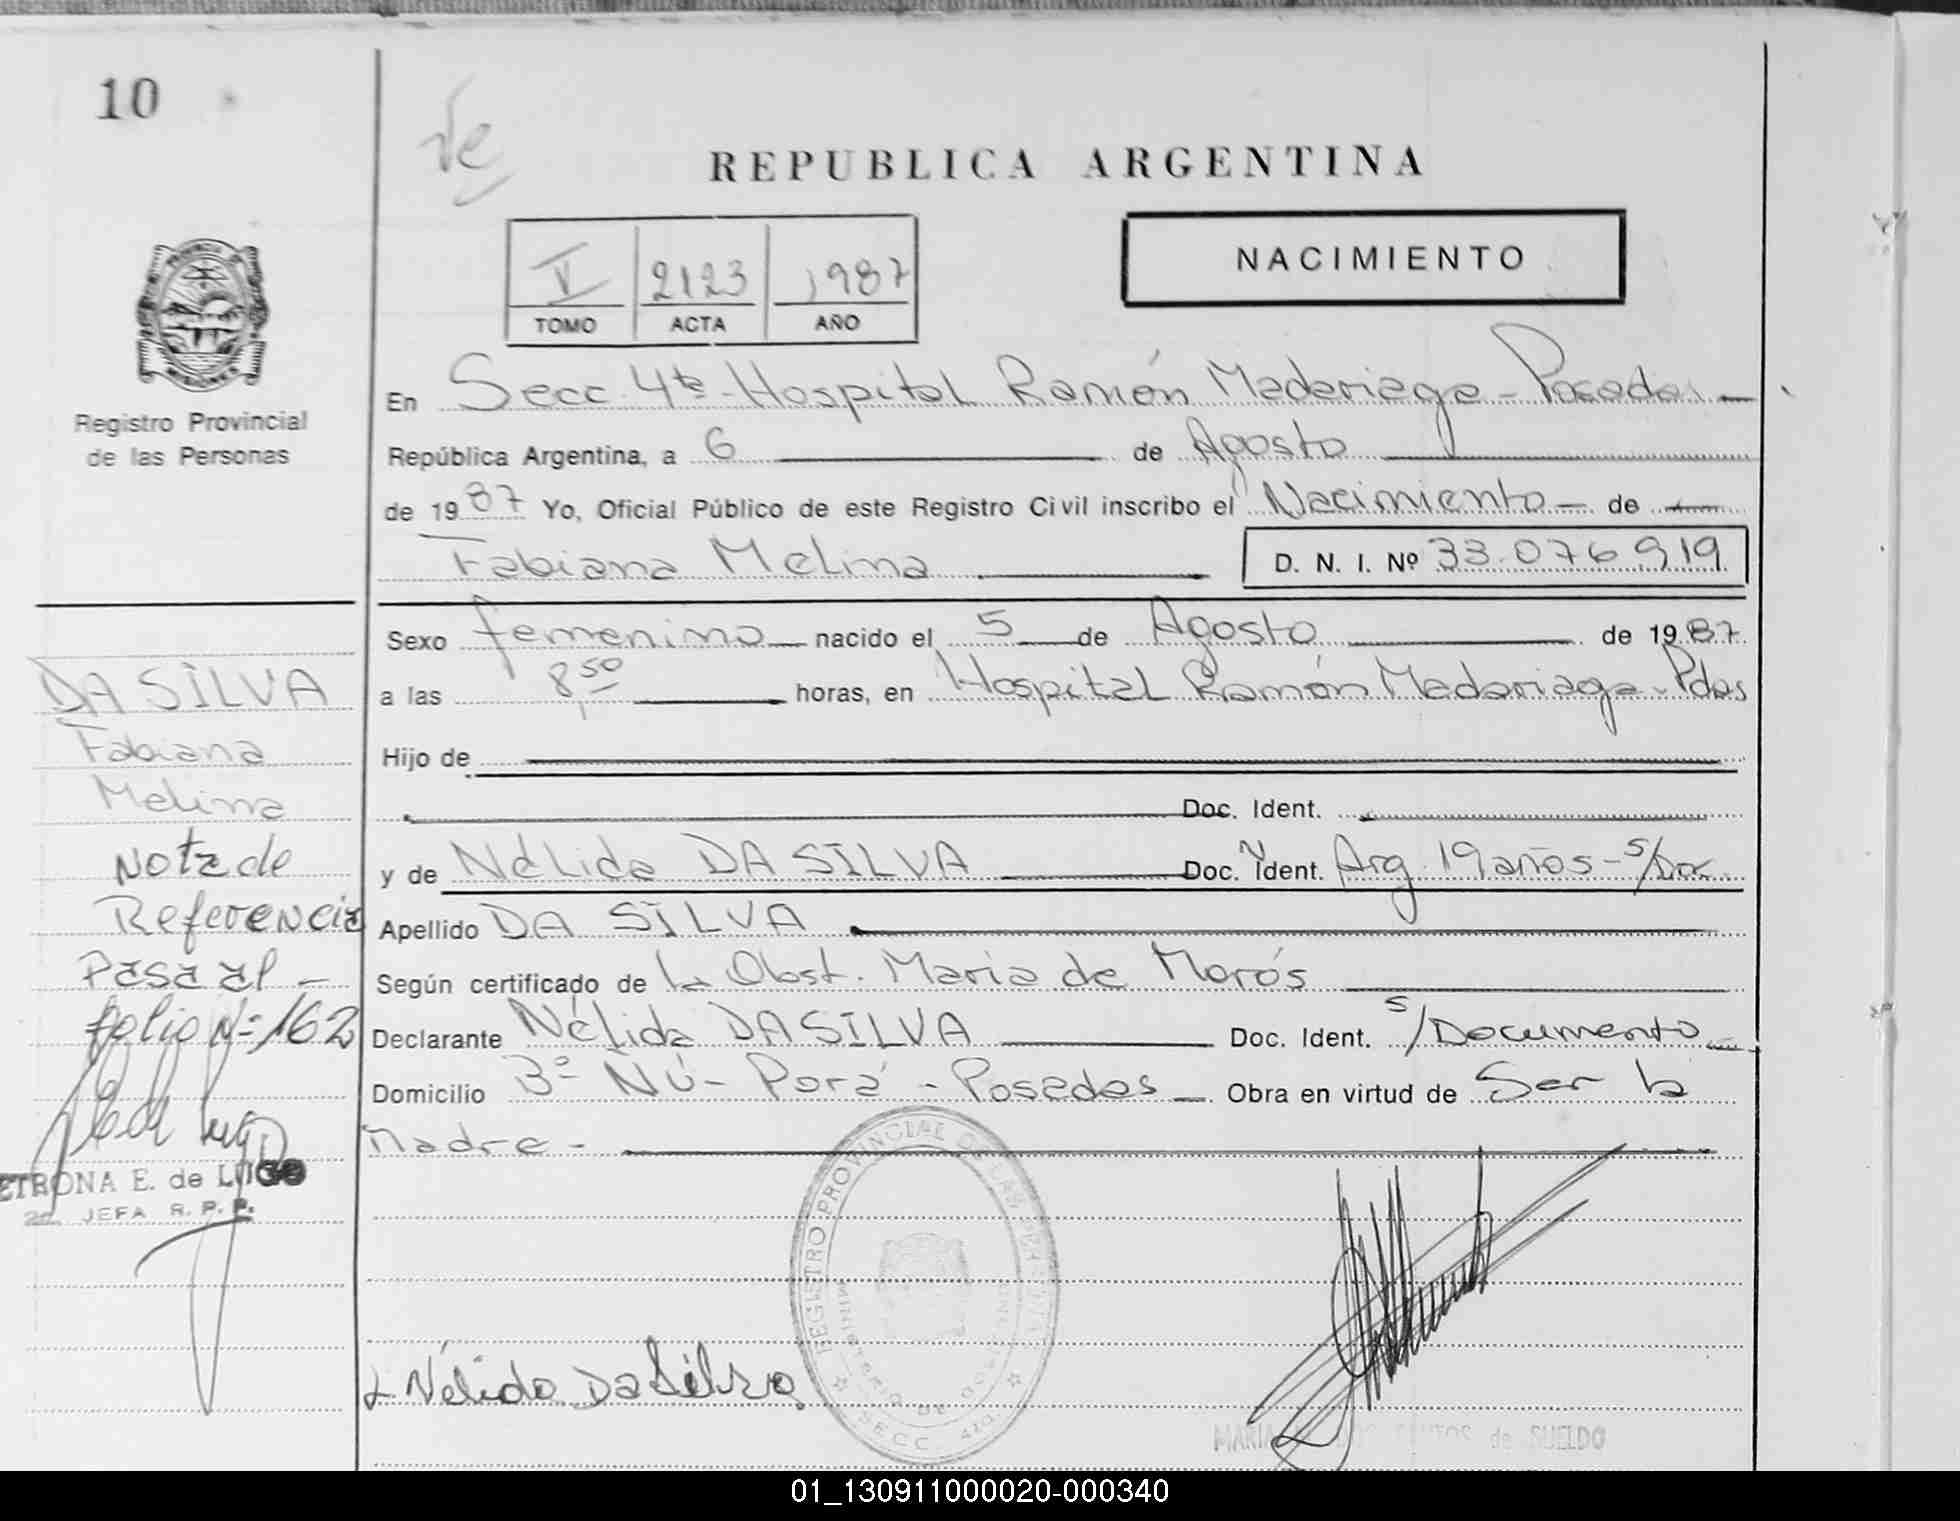 10
Ve
REPUBLICA ARGENTINA
V 2123 1987
TOMO ACTA AÑO
NACIMIENTO
MISIONES
Registro Provincial
de las Personas
En Secc. 4ta - Hospital Ramón Madariaga - Posadas
República Argentina, a 6 de Agosto
de 1987 Yo, Oficial Público de este Registro Civil inscribo el Nacimiento - de
Fabiana Melina D. N. I. Nº 33.076.919
Sexo femenino nacido el 5 de Agosto de 1987
a las 8,50 horas, en Hospital Ramón Madariaga - Pdas
Hijo de
Doc. Ident.
y de Nélida DA SILVA Doc. Ident. N Arg. 19 años - s/Doc.
Apellido DA SILVA
Según certificado de la Obst. Maria de Morós
Declarante Nélida DA SILVA Doc. Ident. s/Documento
Domicilio Bº Ñú - Porá - Posadas Obra en virtud de Ser la
Madre -
DA SILVA
Fabiana
Melina
Nota de
Referencia
Pasa al -
folio Nº 162
ETRONA E. de LUGO
2a. JEFA R. P. P.
REGISTRO PROVINCIAL DE LAS PERSONAS
MINISTERIO DE GOBIERNO
SECC. 4ta.
Nélida Da Silva
MARIA SANTOS de SUELDO
01_130911000020-000340